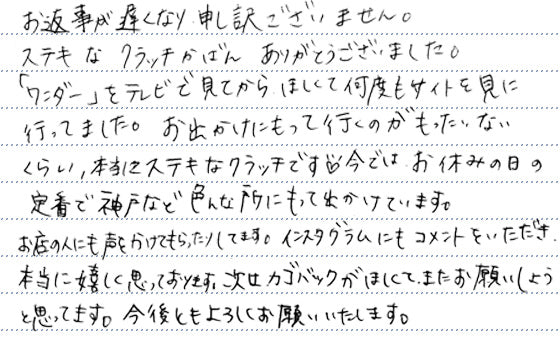 お返事が遅くなり申し訳ございません。
ステキな クラッチかばん ありがとうございました。
「ワンダー」をテレビで見てから ほしくて何度もサイトを見に
行ってました。 お出かけにもって行くのがもったいない
くらい、本当にステキなクラッチです 今では お休みの日の
定番で神戸など色んな所にもって出かけています。
お店の人にも声をかけてもらったりしてます。インスタグラムにもコメントをいただき、
本当に嬉しく思っております。次はカゴバックがほしくて、またお願いしよう
と思ってます。今後ともよろしくお願いいたします。